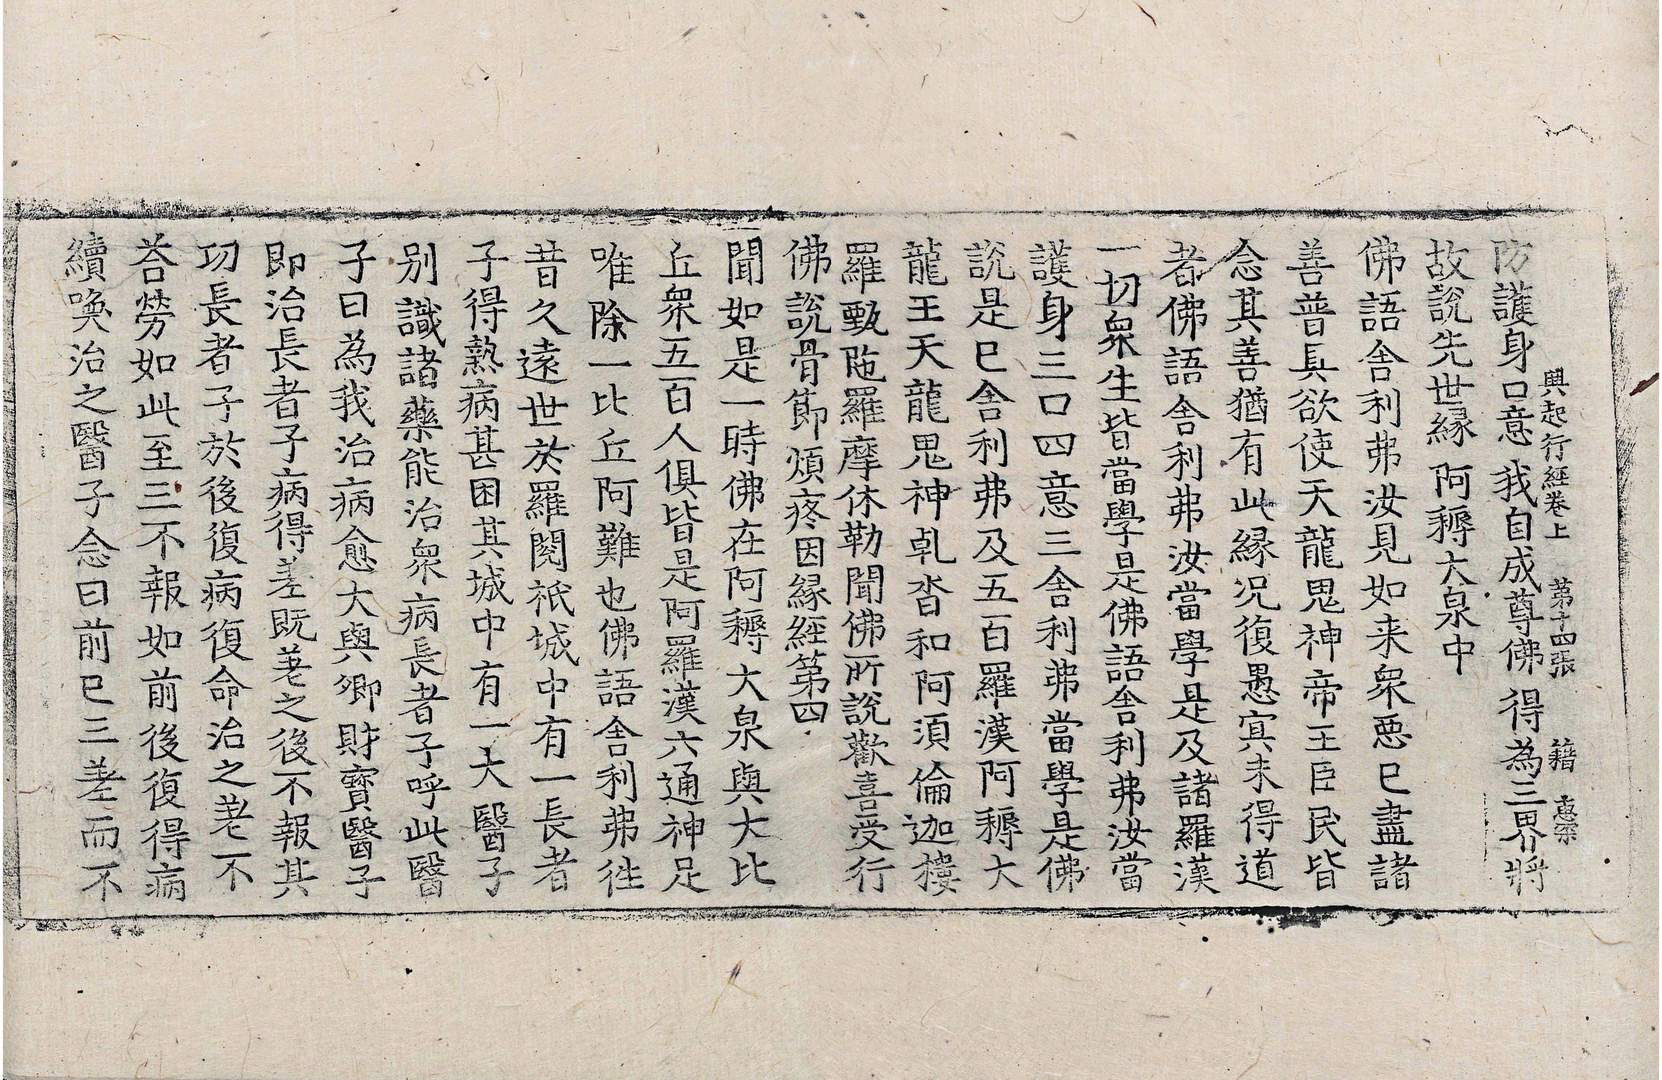 興起行經卷上 第十四張 籍 惠宗
防護身口意 我自成尊佛 得為三界將
故說先世緣 阿耨大泉中
佛語舍利弗汝見如来衆惡已盡諸
善普具欲使天龍鬼神帝王臣民皆
念其善猶有此緣况復愚㝠未得道
者佛語舍利弗汝當學是及諸羅漢
一切衆生皆當學是佛語舍利弗汝當
護身三口四意三舍利弗當學是佛
說是已舍利弗及五百羅漢阿耨大
龍王天龍鬼神乹沓和阿須倫迦樓
羅甄陁羅摩休勒聞佛所說歡喜受行
佛說骨節煩疼因緣經第四
聞如是一時佛在阿耨大泉與大比
丘衆五百人俱皆是阿羅漢六通神足
唯除一比丘阿難也佛語舍利弗徃
昔久遠世於羅閱祇城中有一長者
子得熱病甚困其城中有一大醫子
别識諸藥能治衆病長者子呼此醫
子曰為我治病愈大與卿財寳醫子
即治長者子病得差既差之後不報其
功長者子於後復病復命治之差不
荅勞如此至三不報如前後復得病
續喚治之醫子念曰前已三差而不